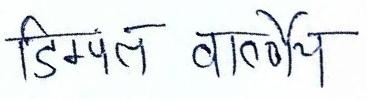 डिम्पल वार्ष्णेय